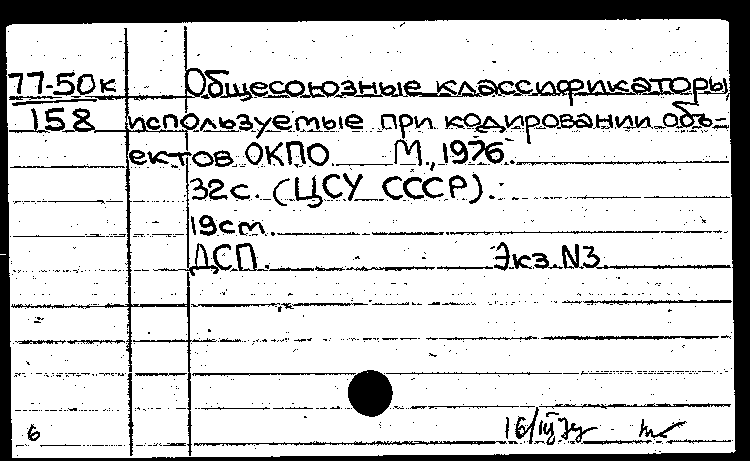 77-50к Общесоюзные классификаторы,
158 используемые при кодировании объ-
ектов ОКПО М., 1976.
32 с. (ЦСУ СССР).
19 cm.
ДСП. Экз. N3.
6